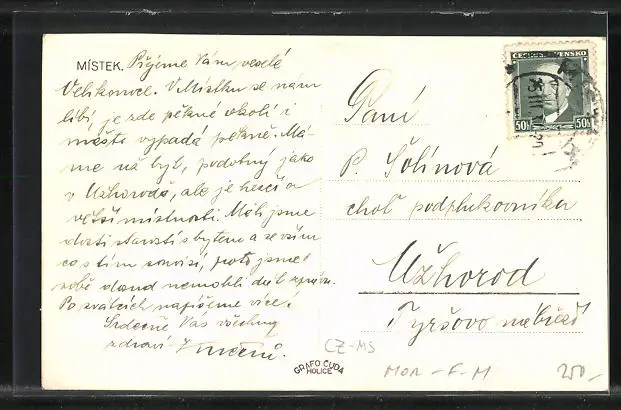 MÍSTEK. Přejeme Vám veselé
Velikonoce. V Místku se nám
líbí, je zde pěkné okolí i
město vypadá pěkně. Má-
me už byt, podobný jako
v Užhorodě, ale je hezčí a
větší místnosti. Měli jsme
dosti starostí s bytem a se vším
co s tím souvisí, proto jsme
o sobě dosud nemohli dát zprávu.
Po svátcích napíšeme více.
Srdečně Vás všechny
zdraví
ČESKOSLOVENSKO
50h 50h
Paní
P. Šolínová
choť podplukovníka
Užhorod
Tyršovo nábřeží
GRAFO ČUDA
HOLICE
CZ-MS
MOR-F-M
250,-